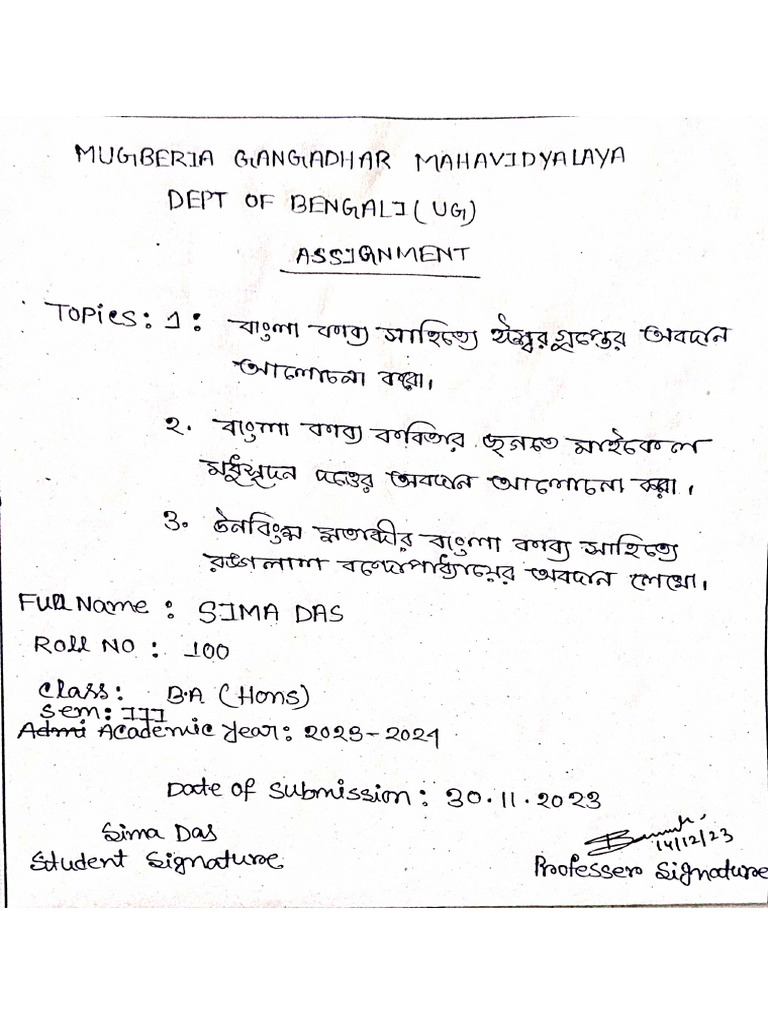 MUGBERIA GANGADHAR MAHAVIDYALAYA
DEPT OF BENGALI (UG)
ASSIGNMENT
Topics: 1: বাংলা কাব্য সাহিত্যে ঈশ্বর গুপ্তের অবদান
আলোচনা করো।
২. বাংলা কাব্য কবিতার জগতে মাইকেল
মধুসূদন দত্তের অবদান আলোচনা করো।
৩. ঊনবিংশ শতাব্দীর বাংলা কাব্য সাহিত্যে
রঙ্গলাল বন্দ্যোপাধ্যায়ের অবদান লেখো।
Full Name : SIMA DAS
Roll NO : 100
Class: B.A (Hons)
Sem: III
Admi Academic Year: 2023-2024
Date of Submission: 30.11.2023
Sima Das
14/12/23
Student Signature
Professer Signature